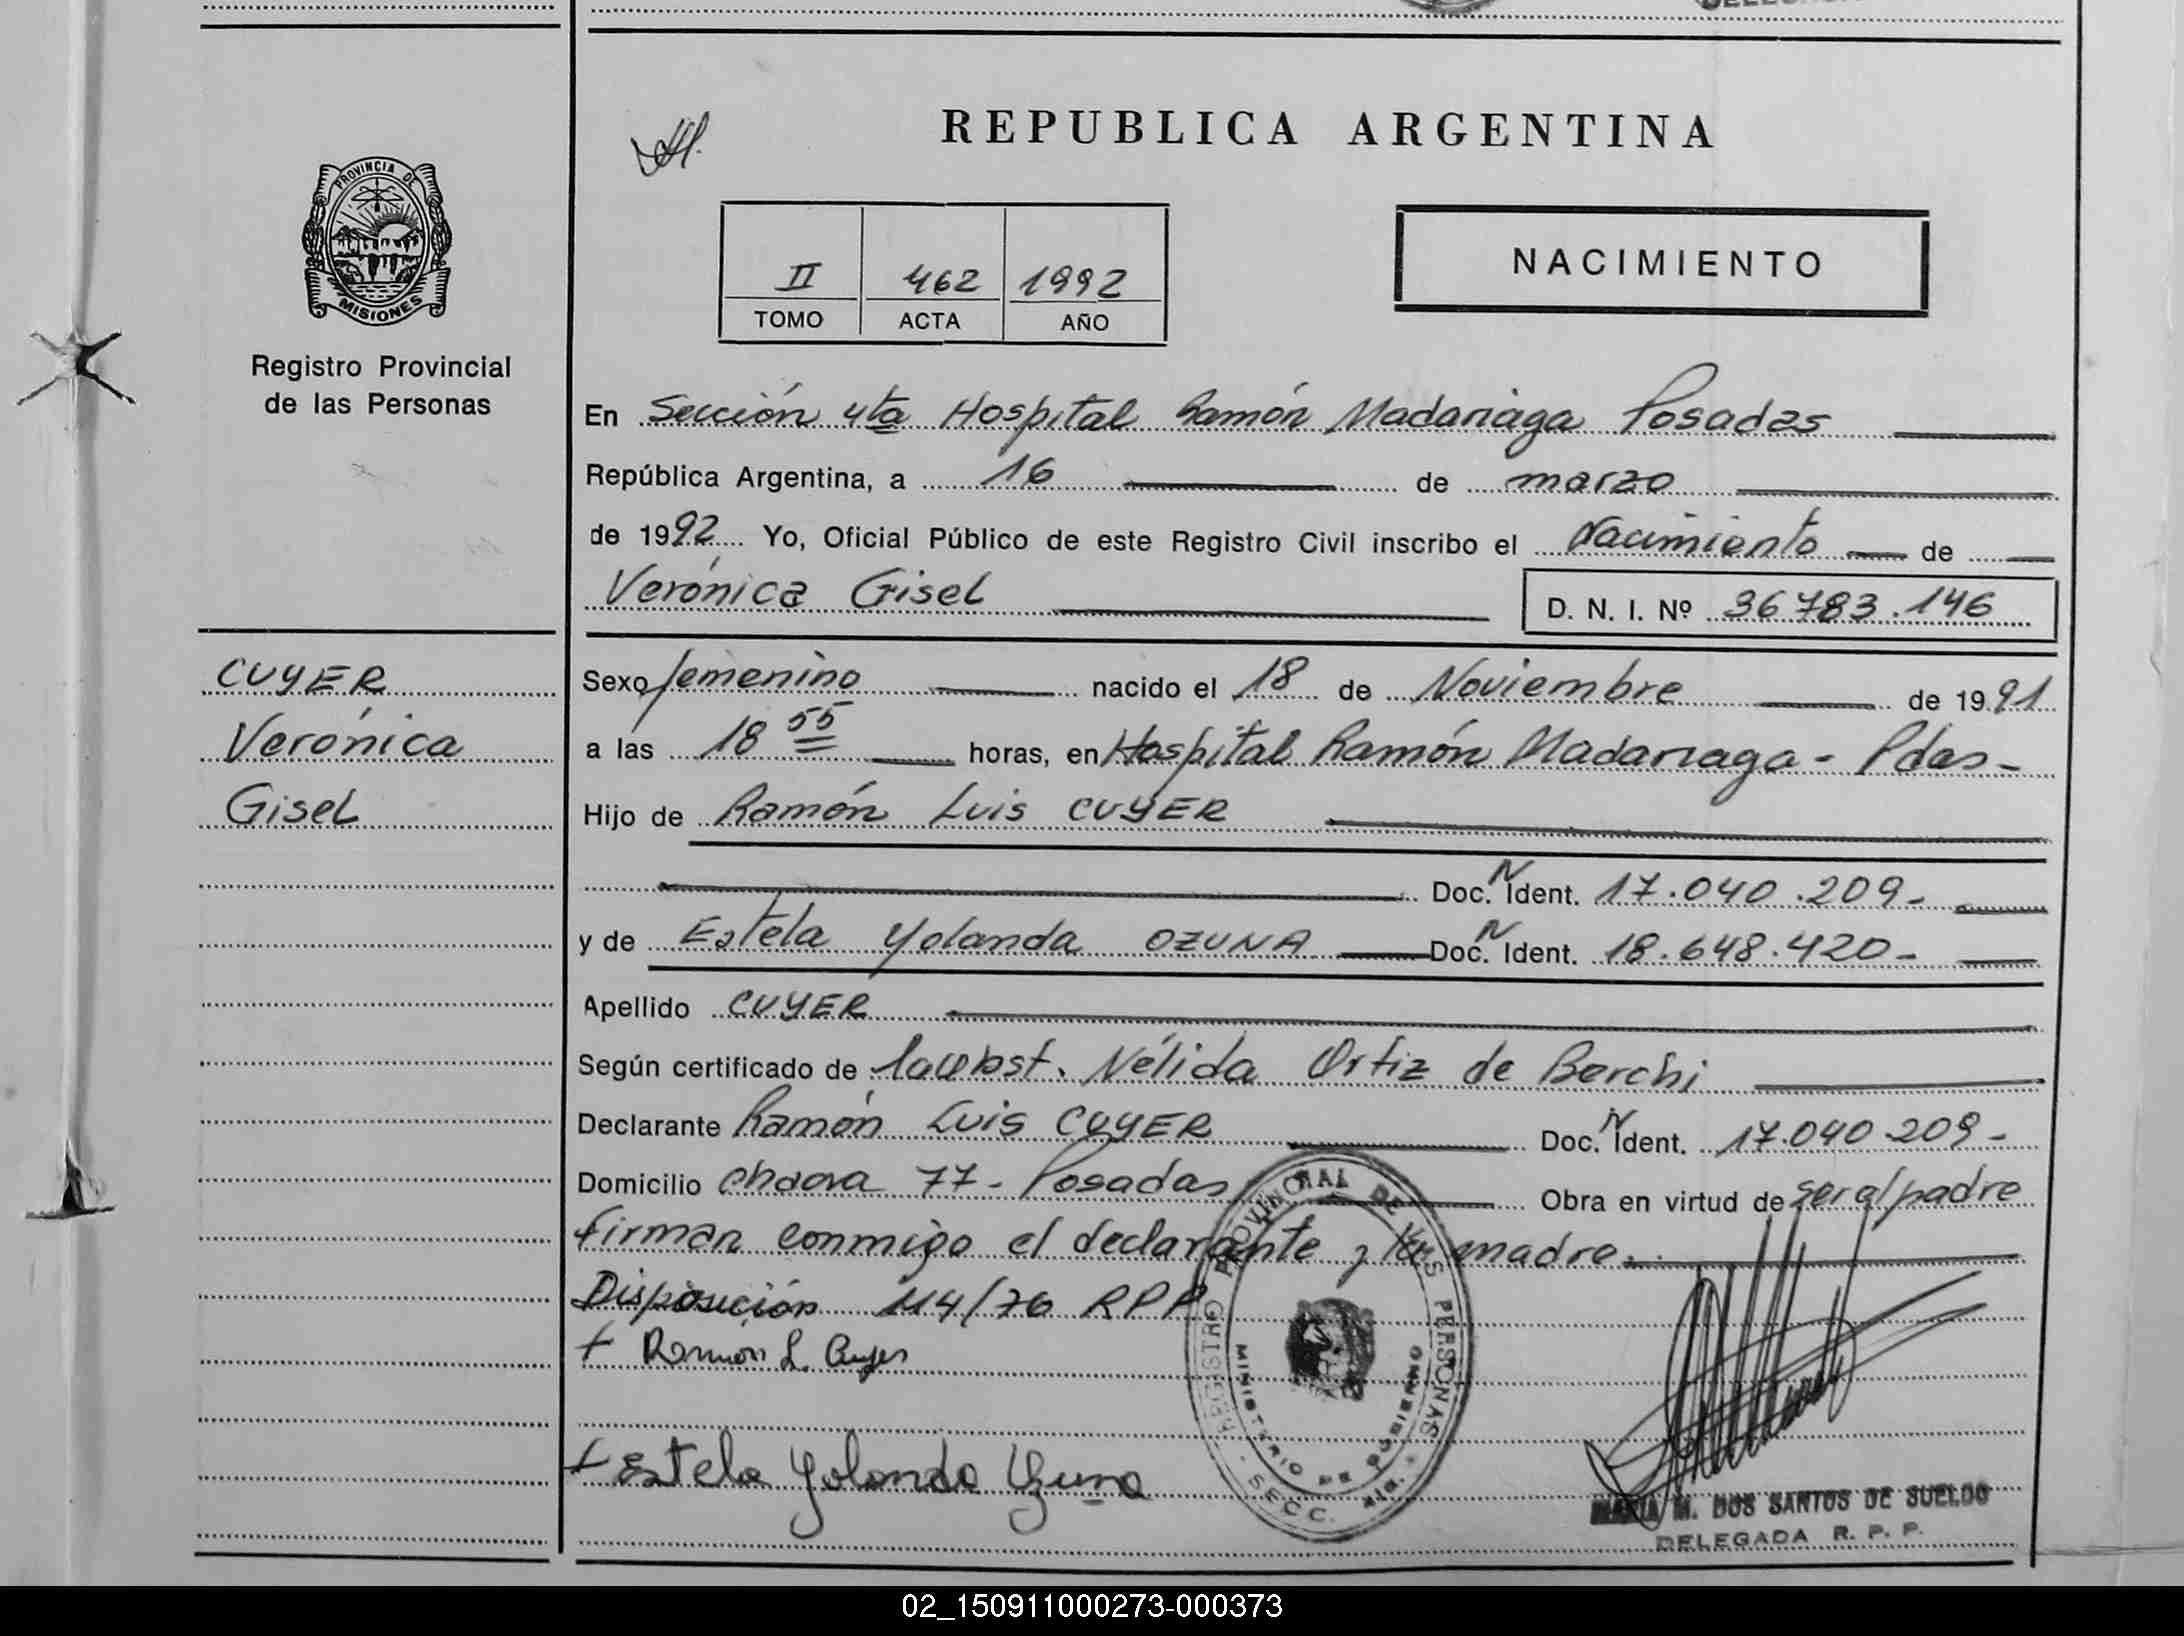 REPUBLICA ARGENTINA
PROVINCIA DE
MISIONES
Registro Provincial
de las Personas
II 462 1992
TOMO ACTA AÑO
NACIMIENTO
En Sección 4ta Hospital Ramón Madariaga Posadas
República Argentina, a 16 de marzo
de 1992 Yo, Oficial Público de este Registro Civil inscribo el Nacimiento de
Verónica Gisel D. N. I. Nº 36783.146
CUYER
Verónica
Gisel
Sexo femenino nacido el 18 de Noviembre de 1991
a las 18 55 horas, en Hospital Ramón Madariaga - Pdas-
Hijo de Ramón Luis CUYER
Doc. N Ident. 17.040.209-
y de Estela Yolanda OZUNA Doc. N Ident. 18.648.420-
Apellido CUYER
Según certificado de Nélida Ortiz de Berchi
Declarante Ramón Luis CUYER Doc. N Ident. 17.040.209-
Domicilio chacra 77- Posadas Obra en virtud de ser el padre
firman conmigo el declarante y la madre.
Disposición 114/76 RPP
+ Ramón L. Cuyer
+ Estela Yolanda Ozuna
REGISTRO PROVINCIAL DE LAS PERSONAS
MINISTERIO DE GOBIERNO
SECC.
MARIA M. DOS SANTOS DE SUELDO
DELEGADA R. P. P.
02_150911000273-000373